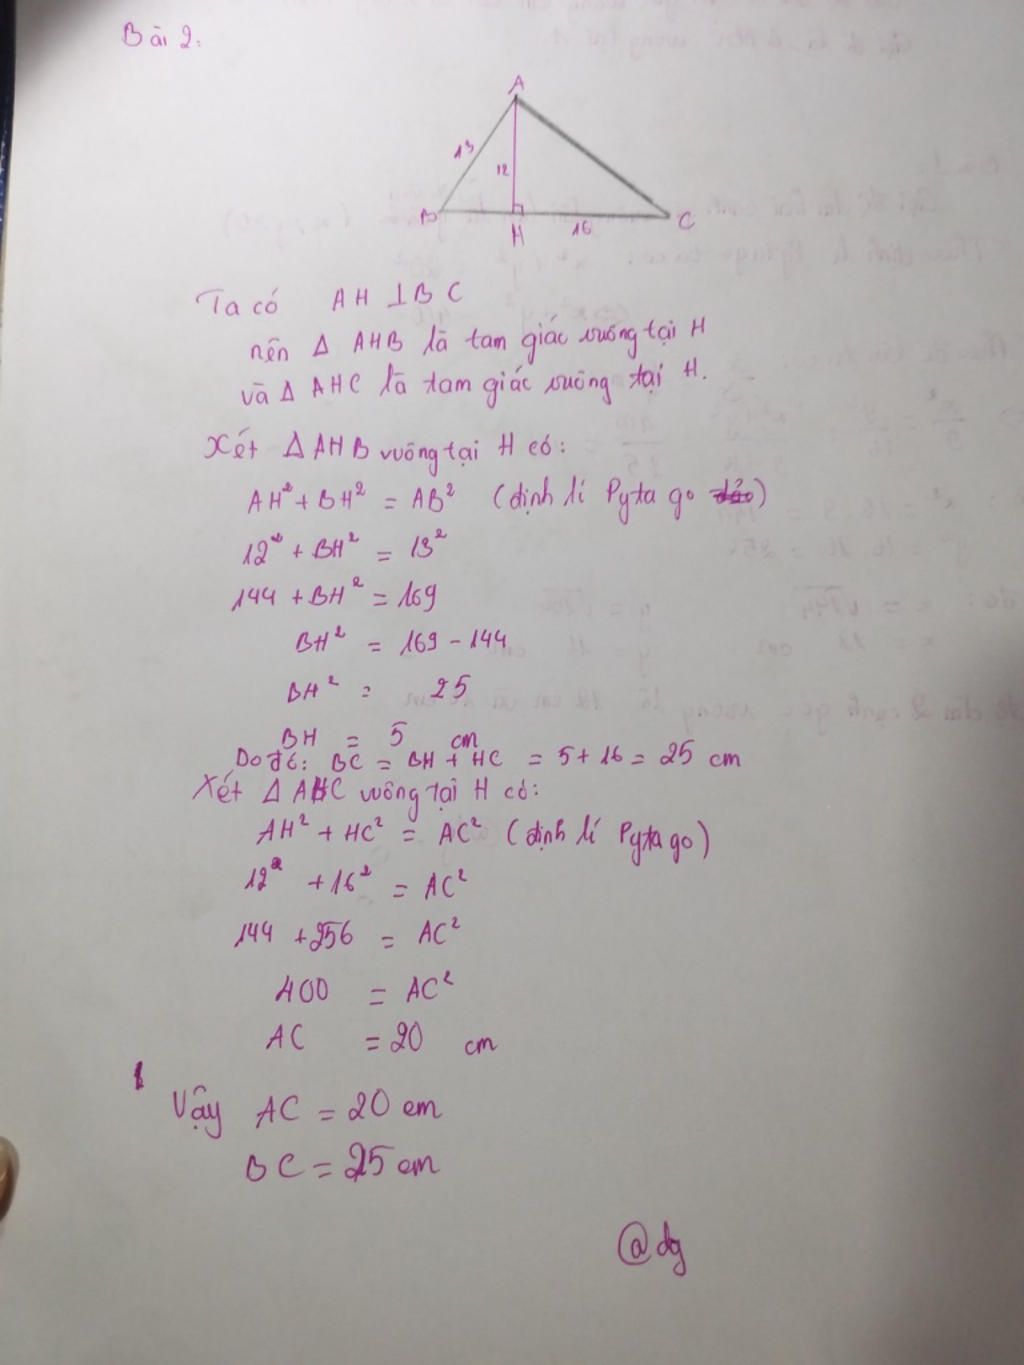 Bài 2:
A
13
12
B
H
16
C
Ta có AH ⊥ BC
nên Δ AHB là tam giác vuông tại H
và Δ AHC là tam giác vuông tại H.
Xét Δ AHB vuông tại H có:
AH² + BH² = AB² (định lí Pytago đảo)
12² + BH² = 13²
144 + BH² = 169
BH² = 169 - 144
BH² = 25
BH = 5 cm
Do đó: BC = BH + HC = 5 + 16 = 25 cm
Xét Δ AHC vuông tại H có:
AH² + HC² = AC² (định lí Pytago)
12² + 16² = AC²
144 + 256 = AC²
400 = AC²
AC = 20 cm
Vậy AC = 20 cm
BC = 25 cm
@dg